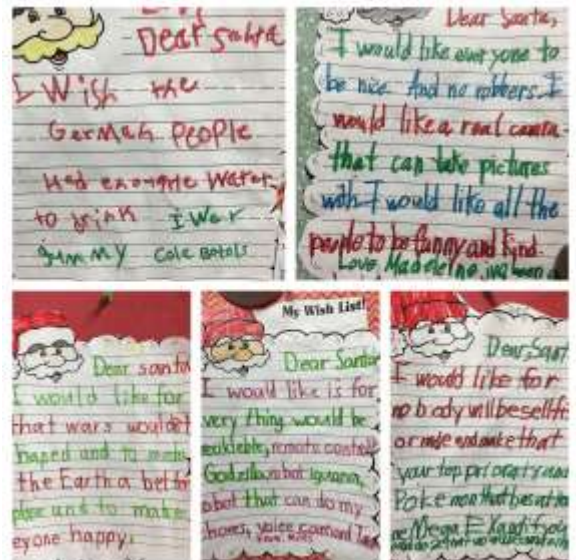 Dear santa
I Wish the
German People
Had enoughe water
to drink I Wor
gummy cole botols
Dear Santa,
I would like everyone to
be nice. And no robbers. I
would like a real camra
that can take pictures
with I would like all the
people to be funny and kind.
Love, Madeleine
Dear santa
I would like for
that wars wouldt
haped and to make
the Earth a bettr
place and to make
eyone happy.
My Wish List!
Dear Santa
I would like is for
very thing would be
remote control
Godzilla robot iguana,
obot that can do my
hores, voice comand
Dear, Sant
I would like for
nobody will be selfi
or rude and make that
your top prioraty and
Pokemon that
Mega EX and if you